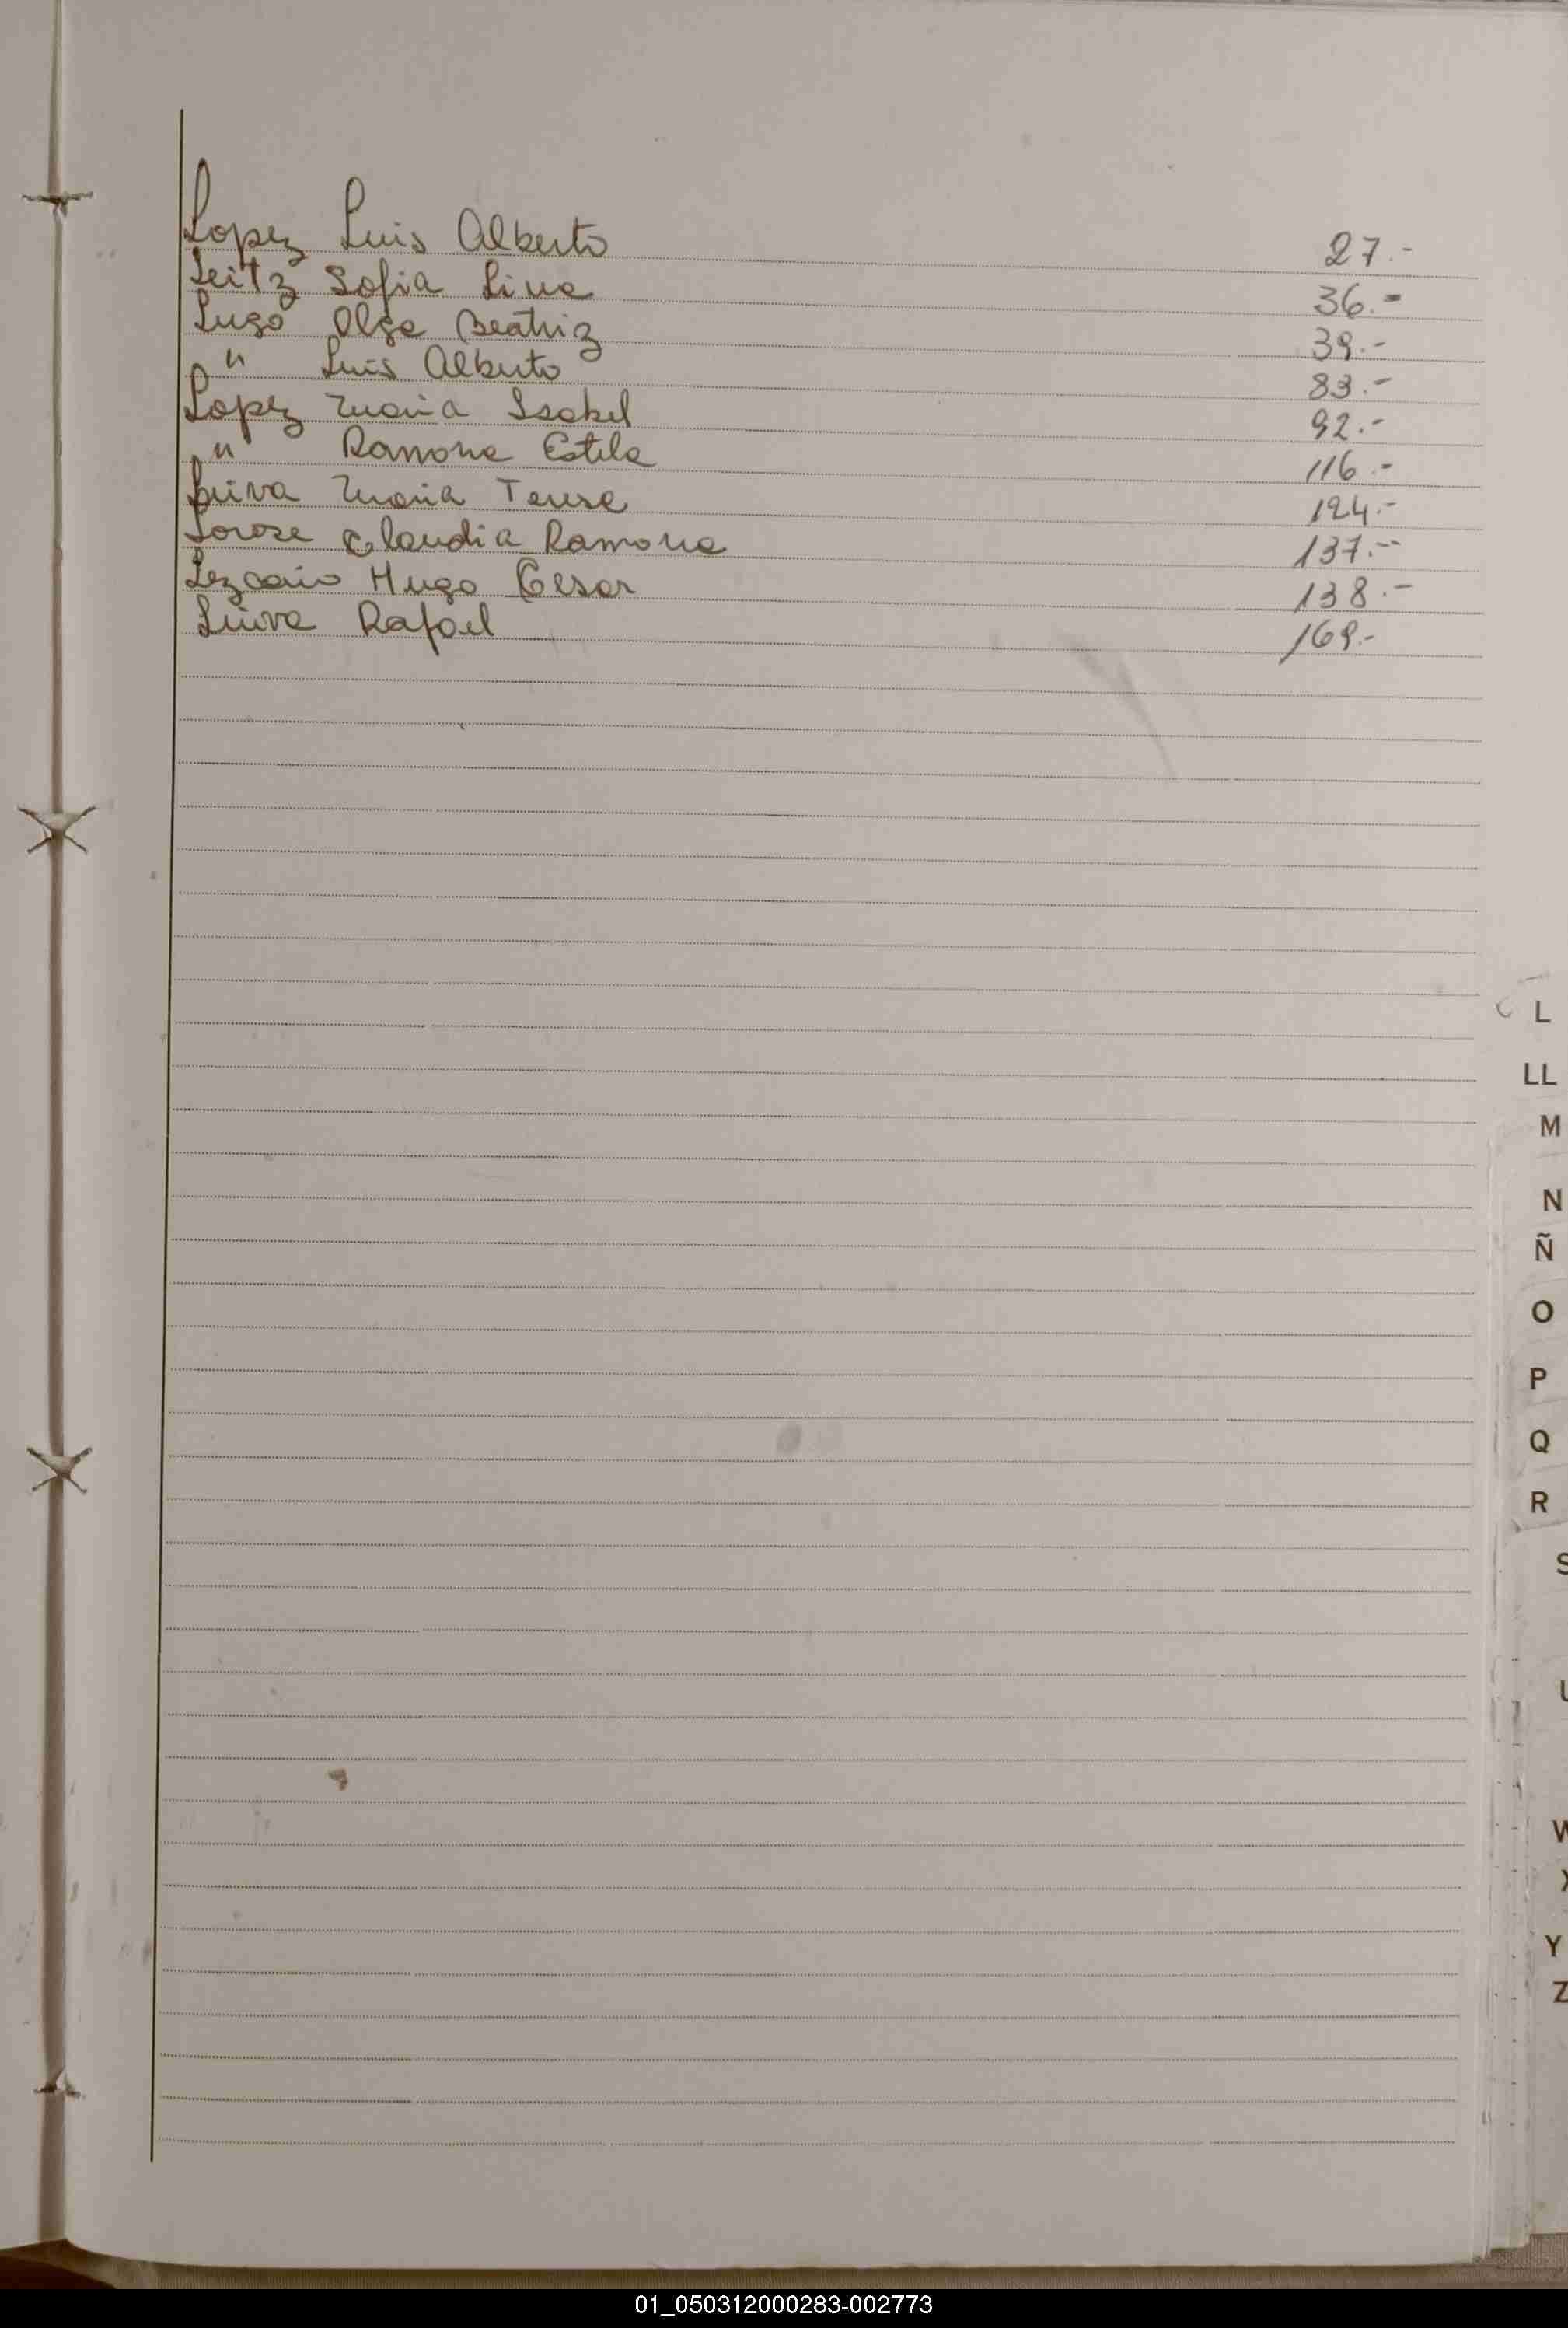 Lopez Luis Alberto 27.-
Leitz Sofia Lina 36.-
Lugo Olga Beatriz 39.-
" Luis Alberto 83.-
Lopez Maria Isabel 92.-
" Ramona Estela 116.-
Leiva Maria Teresa 124.-
Claudia Ramona 137.-
Lezcano Hugo Cesar 138.-
Leiva Rafael 169.-
L
LL
M
N
Ñ
O
P
Q
R
S
U
W
X
Y
Z
01_050312000283-002773